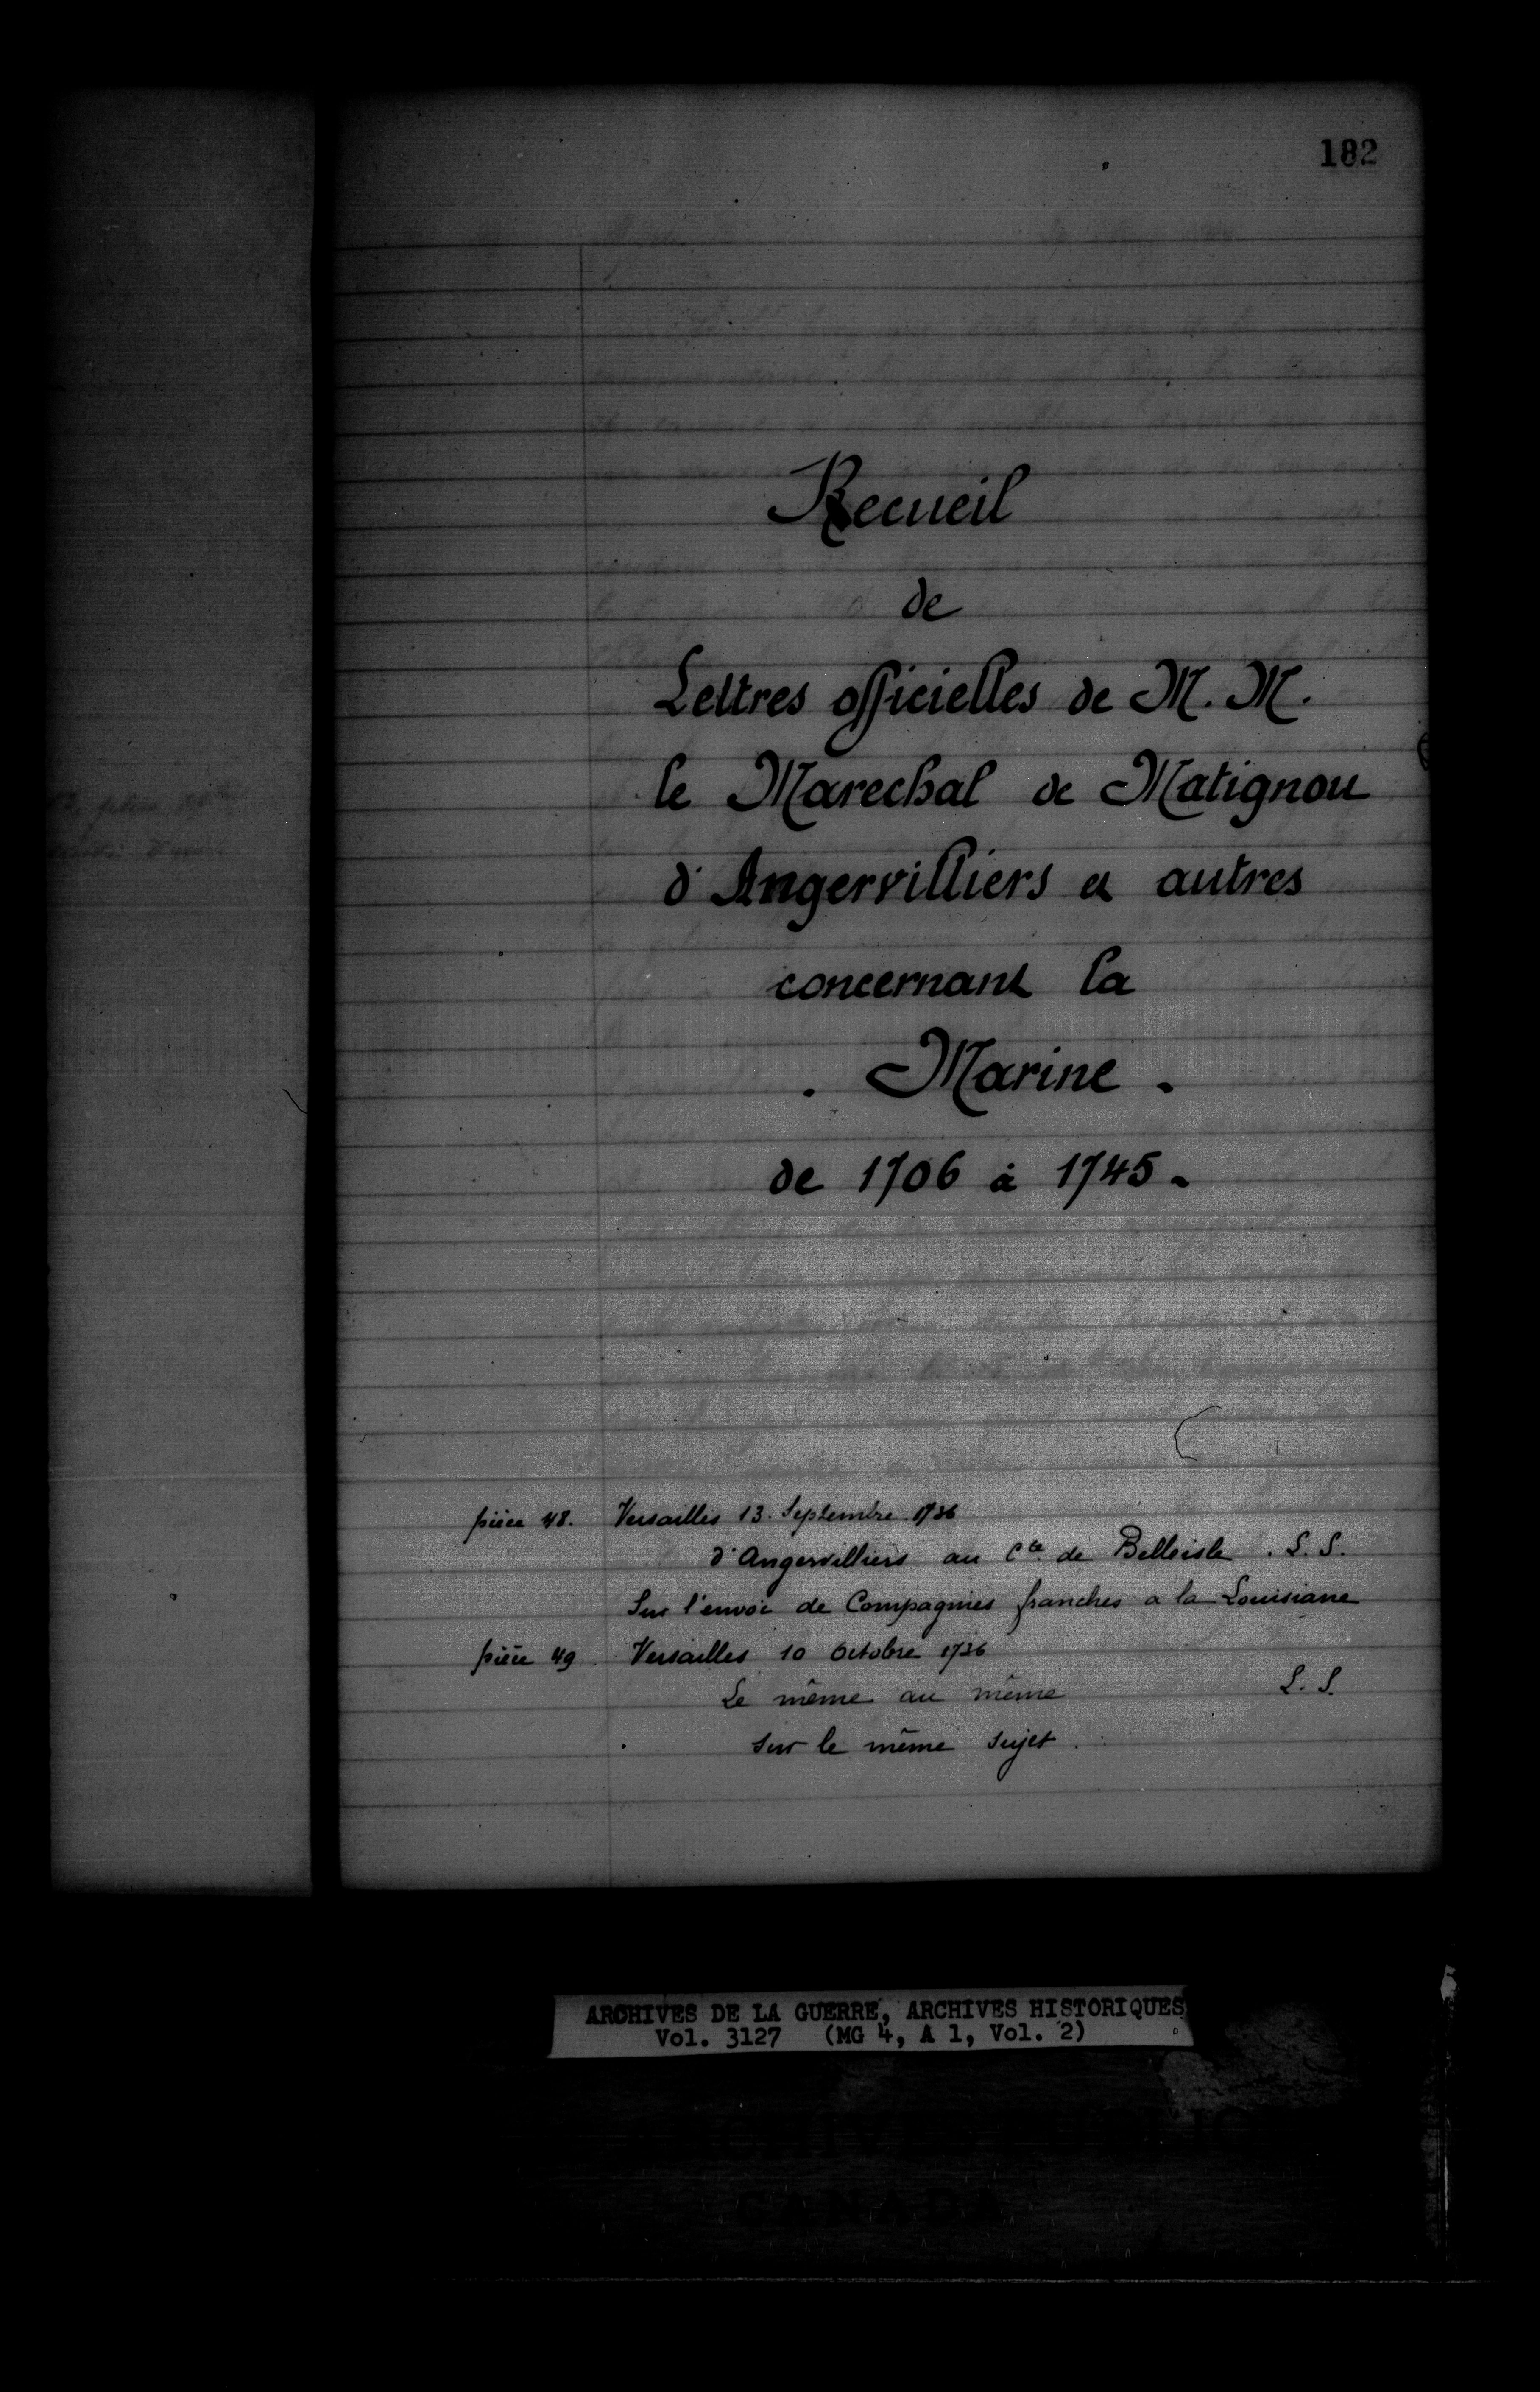 182
Recueil
de
Lettres officielles de M. M.
le Marechal de Matignon
d'Angervilliers et autres
concernant la
. Marine .
de 1706 à 1745.
pièce 48. Versailles 13. Septembre 1736
d'Angervilliers au Cte de Belleisle . L. S.
Sur l'envoi de Compagnies franches a la Louisiane
pièce 49 Versailles 10 Octobre 1736
Le même au même L. S.
sur le même sujet.
ARCHIVES DE LA GUERRE, ARCHIVES HISTORIQUES
Vol. 3127 (MG 4, A 1, Vol. 2)